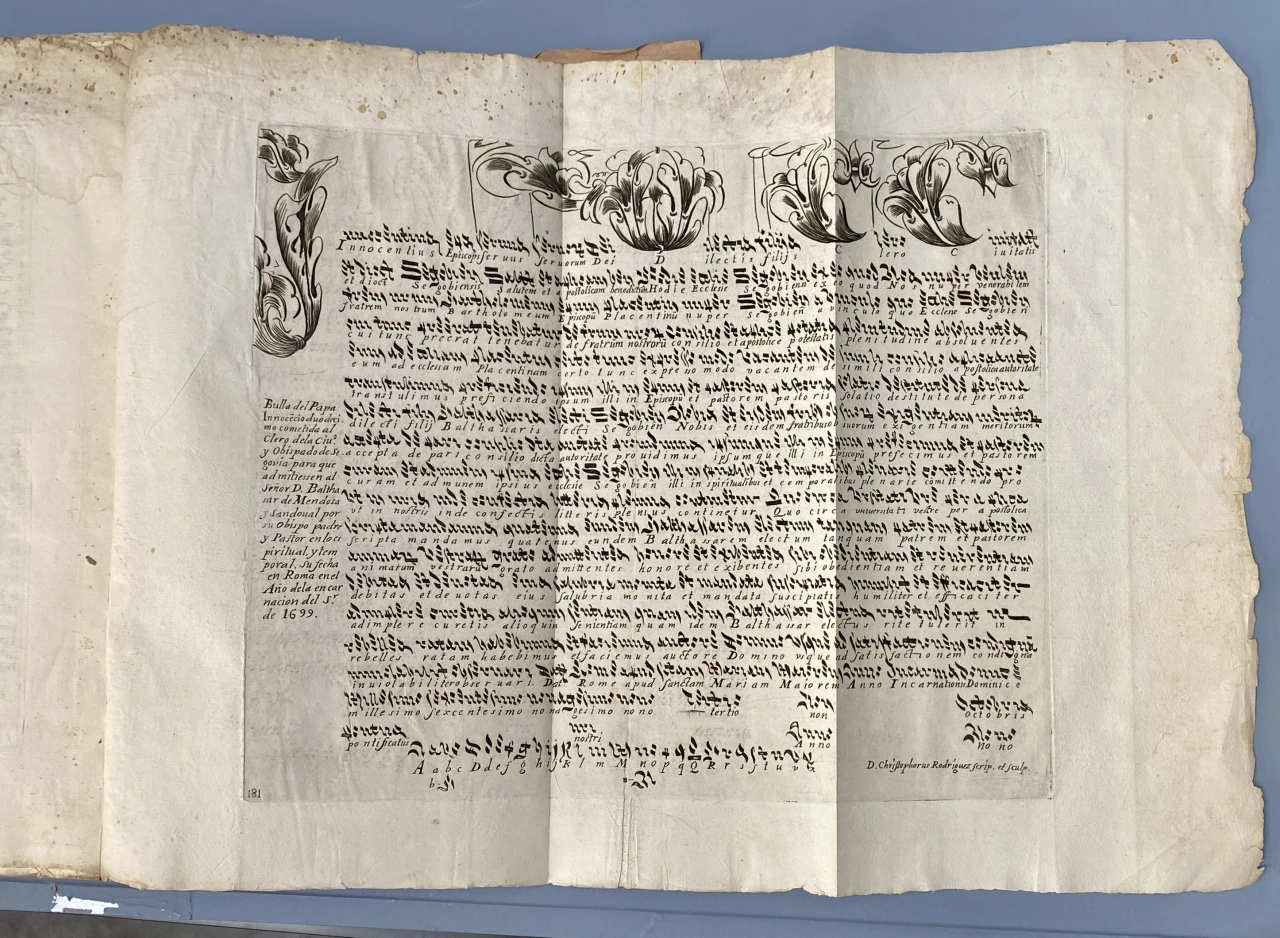 Innocentius Episcopꝰ seruus seruorum Dei Dilectis filijs Clero Ciuitatis
et dioct Segobiensis Salutem et apostolicam benedictm Hodie Ecclesie Segobiens ex eo quod Nos nuper venerabilem
fratrem nostrum Bartholomeum Episcopū Placentinū nuper Segobien a vinculo quo Ecclese Segobien
cui tunc preerat tenebatur de fratrum nostrorū consilio et apostolice potestatis plenitudine absoluentes
eum ad ecclesiam Placentinam certo tunc expreso modo vacantem de simili consilio apostolica autoritate
transtulimus preficiendo ipsum illi in Episcopū et pastorem pastoris solatio destitute de persona
dilecti filij Balthassaris electi Segobien Nobis et eisdem fratribus ob suorum exigentiam meritorum
accepta de pari consilio dicta autoritate prouidimus ipsumque illi in Episcopū prefecimus et pastorem
curam et admunem ipsius ecclesie Segobien illi in spiritualibus et temporalibus plenarie comittendo pro
vt in nostris inde confectis litteris plenius continetur Quo circa vniuersitati vestre per apostolica
scripta mandamus quatenus eundem Balthassarem electum tanquam patrem et pastorem
animarum vestrarū grato admittentes honore et exibentes sibi obedientiam et reuerentiam
debitas et deuotas eius salubria monita et mandata suscipiatis humiliter et efficaciter
adimplere curetis alioquin sentientiam quam idem Balthassar electus rite tulerit in
rebelles ratam habebimus et faciemus auctore Domino vsque ad satisfactionem condignā
inuiolabiliter obseruari Datt Rome apud sanctam Mariam Maiorem Anno Incarnationis Dominice
millesimo sexcentesimo nonagesimo nono tertio non octobris
pontificatus nostri Anno nono
A a b c D d e f g h i j K l m M n o p q Q R r s s t u v x
Bulla del Papa
Innocēcio duodeci
mo cometida al
Clero de la Ciud
y Obispado de Se
govia para que
admitiessen al
Señor D. Baltha
sar de Mendoza
y Sandoual por
su Obispo padre
y Pastor en lo es
piritual, y tem
poral. su fecha
en Roma en el
Año de la encar
nacion del Sr.
de 1699.
D. Christophorus Rodriguez scrip. et sculp.
181